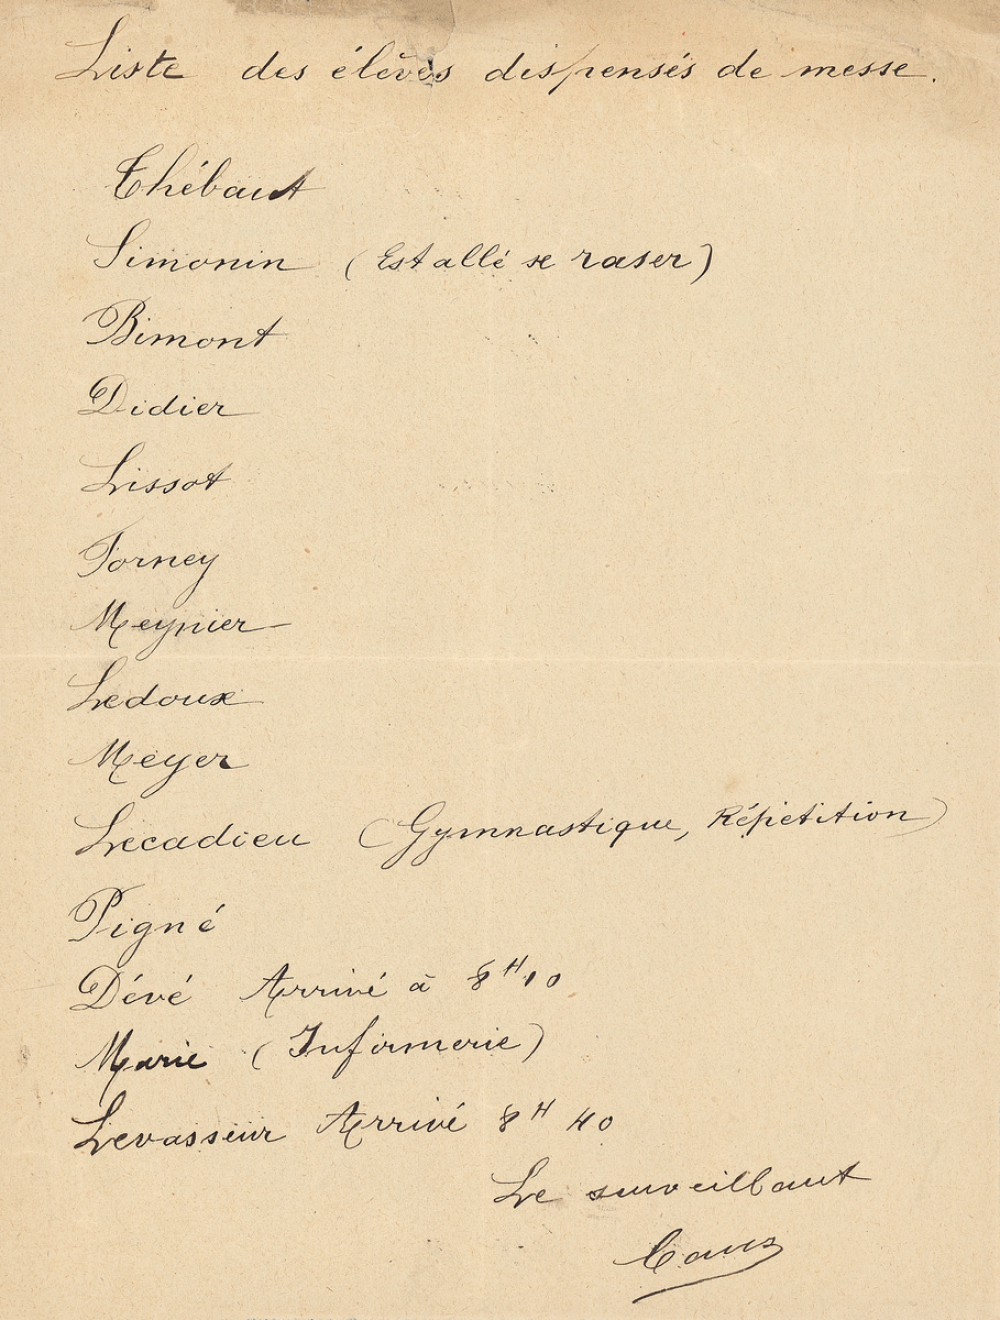 Liste des élèves dispensés de messe.
Thébaut
Simonin (Est allé se raser)
Bimont
Didier
Lissot
Forney
Meynier
Ledoux
Meyer
Lecadieu (Gymnastique, Répétition)
Pigné
Dévé Arrivé à 8H10
Marie (Infirmerie)
Levasseur Arrivé 8H 40
Le surveillant